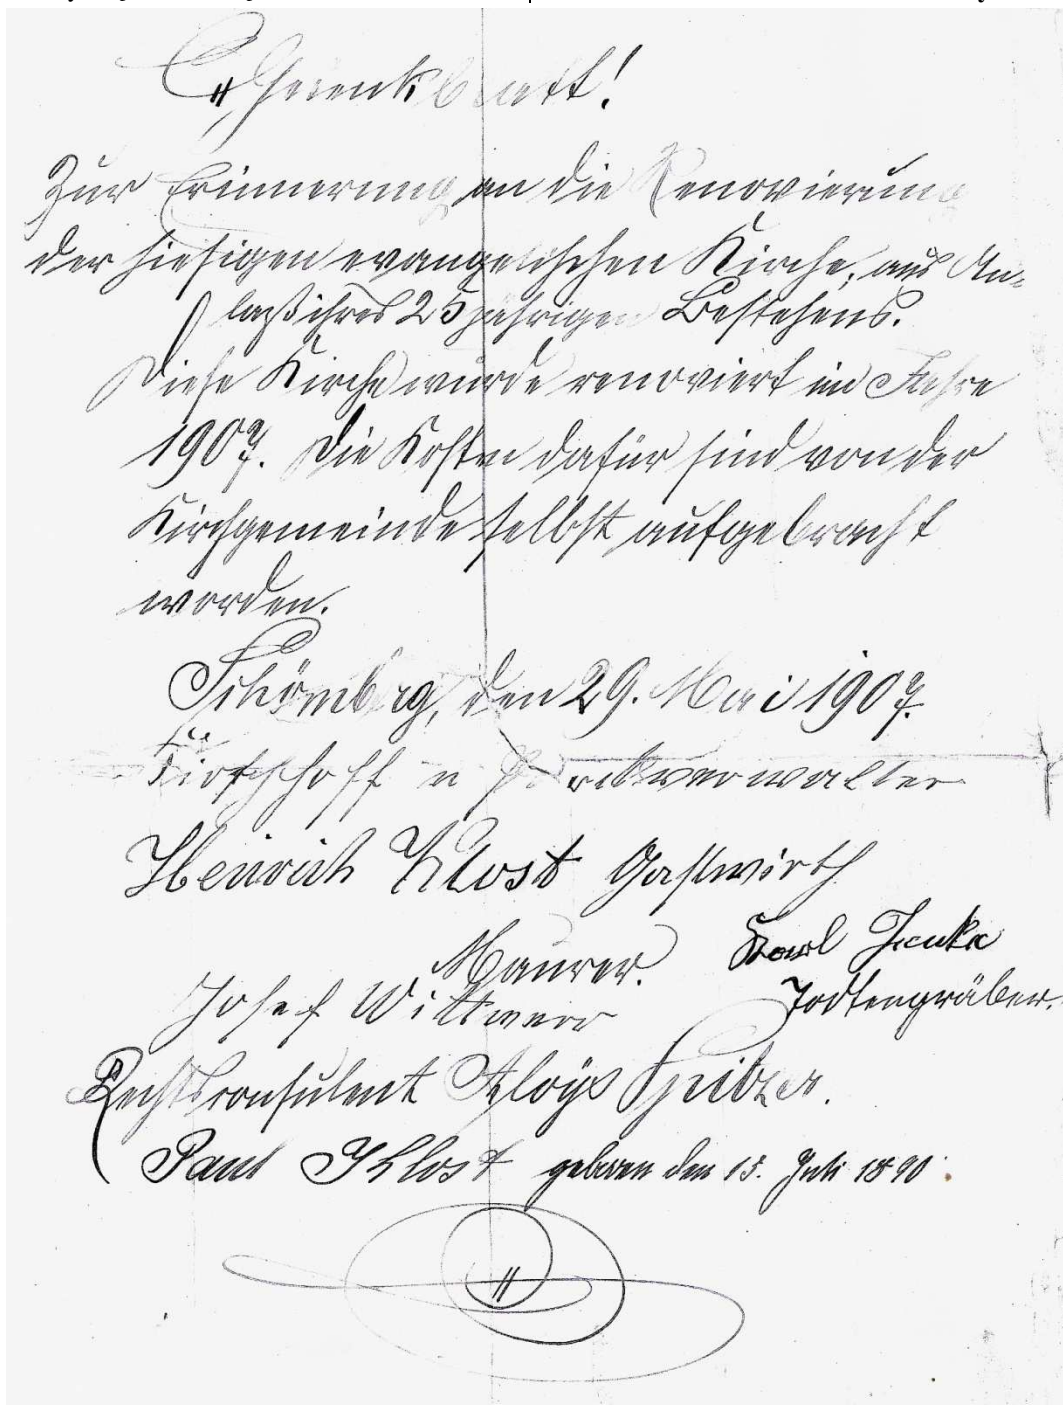 Gedenkblatt!
Zur Erinnerung an die Renovierung
der hiesigen evangelischen Kirche, aus An-
laß ihres 25 jährigen Bestehens.
Diese Kirche wurde renoviert im Jahre
1907. Die Kosten dafür sind von der
Kirchgemeinde selbst aufgebracht
worden.
Schömberg, den 29. Mai 1907.
u verwalter
Heinrich Klost Gastwirth
Maurer. Karl
Josef Wittwer Todtengräber.
Rechtsconsulent Aloys Spitzer.
Paul Khlost geboren den 15. Juli 1890.